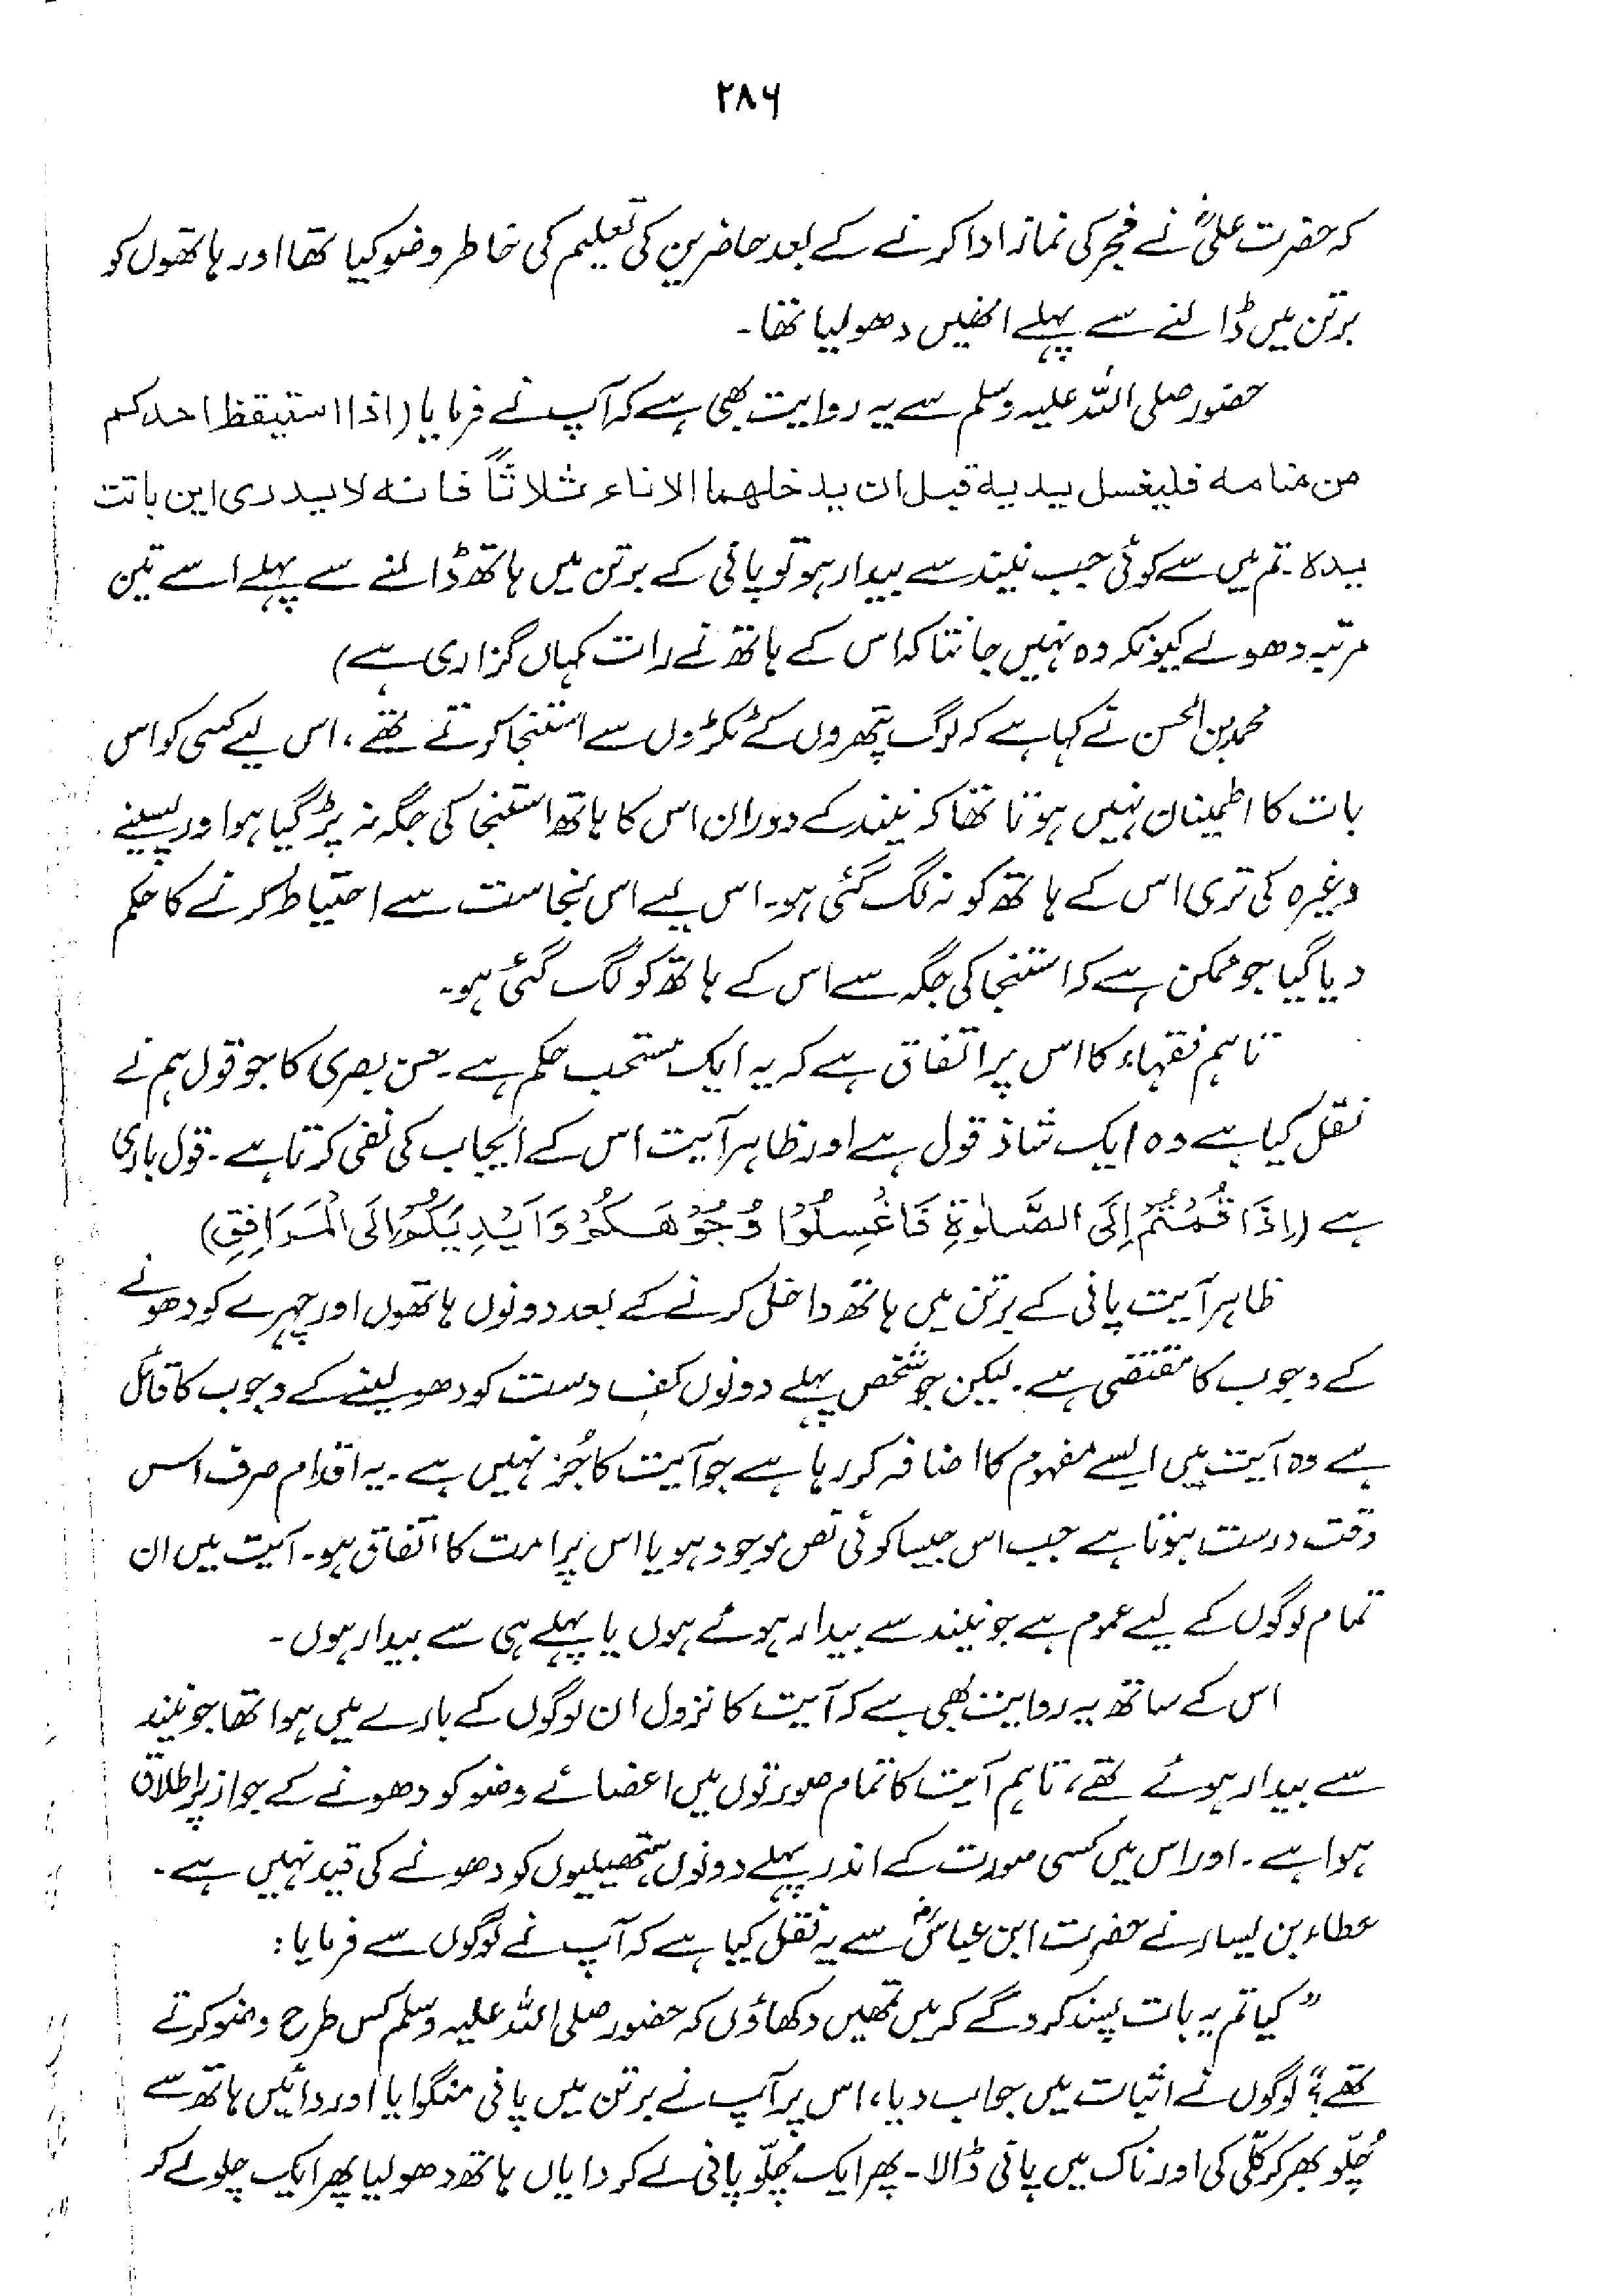 ۲۸۶
کہ حضرت علیؓ نے فجر کی نماز ادا کرنے کے بعد حاضرین کی تعلیم کی خاطر وضو کیا تھا اور ہاتھوں کو
برتن میں ڈالنے سے پہلے انھیں دھو لیا تھا۔
حضور صلی اللہ علیہ وسلم سے یہ روایت بھی ہے کہ آپ نے فرمایا (اذا استیقظ احدکم
من منامہ فلیغسل یدیہ قبل ان یدخلھما الاناء ثلاثاً فانہ لا یدری این باتت
یدہ۔ تم میں سے کوئی جب نیند سے بیدار ہو تو پانی کے برتن میں ہاتھ ڈالنے سے پہلے اسے تین
مرتبہ دھولے کیونکہ وہ نہیں جانتا کہ اس کے ہاتھ نے رات کہاں گزاری ہے)
محمد بن الحسن نے کہا ہے کہ لوگ پتھروں کے ٹکڑوں سے استنجا کرتے تھے، اس لیے کسی کو اس
بات کا اطمینان نہیں ہوتا تھا کہ نیند کے دوران اس کا ہاتھ استنجا کی جگہ نہ پڑ گیا ہو اور پسینے
وغیرہ کی تری اس کے ہاتھ کو نہ لگ گئی ہو۔ اس لیے اس نجاست سے احتیاط کرنے کا حکم
دیا گیا جو ممکن ہے کہ استنجا کی جگہ سے اس کے ہاتھ کو لگ گئی ہو۔
تاہم فقہاء کا اس پر اتفاق ہے کہ یہ ایک مستحب حکم ہے۔ حسن بصری کا جو قول ہم نے
نقل کیا ہے وہ ایک شاذ قول ہے اور ظاہر آیت اس کے ایجاب کی نفی کرتا ہے۔ قول باری
ہے (اِذَا قُمْتُمْ اِلَی الصَّلٰوۃِ فَاغْسِلُوْا وُجُوْھَکُمْ وَاَیْدِیَکُمْ اِلَی الْمَرَافِقِ)
ظاہر آیت پانی کے برتن میں ہاتھ داخل کرنے کے بعد دونوں ہاتھوں اور چہرے کو دھونے
کے وجوب کا مقتضی ہے۔ لیکن جو شخص پہلے دونوں کف دست کو دھو لینے کے وجوب کا قائل
ہے وہ آیت میں ایسے مفہوم کا اضافہ کر رہا ہے جو آیت کا جُز نہیں ہے۔ یہ اقدام صرف اس
وقت درست ہوتا ہے جب اس جیسا کوئی نص موجود ہو یا اس پر امت کا اتفاق ہو۔ آیت میں ان
تمام لوگوں کے لیے عموم ہے جو نیند سے بیدار ہوئے ہوں یا پہلے ہی سے بیدار ہوں۔
اس کے ساتھ یہ روایت بھی ہے کہ آیت کا نزول ان لوگوں کے بارے میں ہوا تھا جو نیند
سے بیدار ہوئے تھے، تاہم آیت کا تمام صورتوں میں اعضائے وضو کو دھونے کے جواز پر اطلاق
ہوا ہے۔ اور اس میں کسی صورت کے اندر پہلے دونوں ہتھیلیوں کو دھونے کی قید نہیں ہے۔
عطاء بن یسار نے حضرت ابن عباسؓ سے یہ نقل کیا ہے کہ آپ نے لوگوں سے فرمایا:
”کیا تم یہ بات پسند کرو گے کہ میں تمھیں دکھاؤں کہ حضور صلی اللہ علیہ وسلم کس طرح وضو کرتے
تھے؟“ لوگوں نے اثبات میں جواب دیا، اس پر آپ نے برتن میں پانی منگوایا اور دائیں ہاتھ سے
چُلّو بھر کر کلّی کی اور ناک میں پانی ڈالا۔ پھر ایک چُلّو پانی لے کر دایاں ہاتھ دھو لیا پھر ایک چلو لے کر